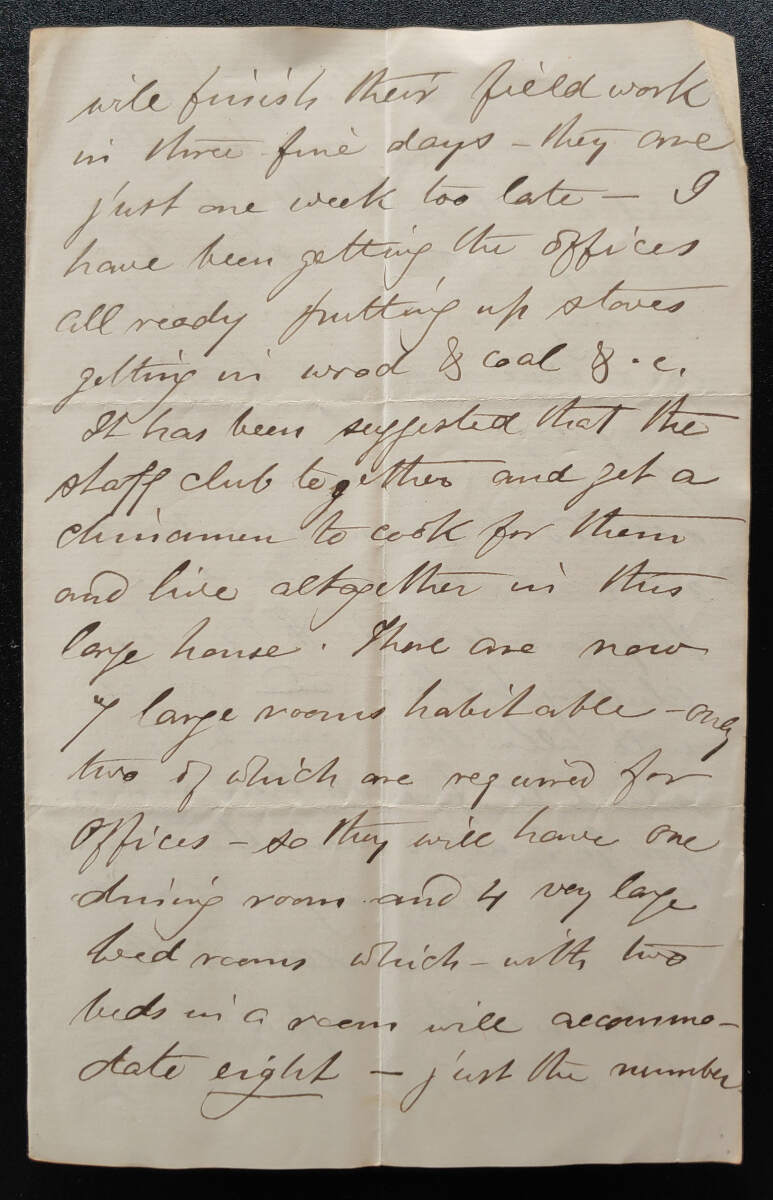 will finish their field work
in three fine days – they are
just one week too late – I
have been getting the offices
all ready putting up stoves
getting in wood & coal &.c.
It has been suggested that the
staff club together and get a
chinamen to cook for them
and live altogether in this
large house. There are now
7 large rooms habitable – only
two of which are required for
offices – so they will have one
dining room and 4 very large
bed rooms which – with two
beds in a room will accommo–
date eight – just the number